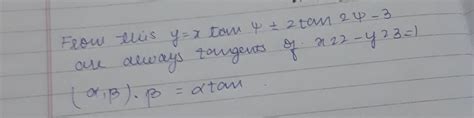 From this y = x tan ψ ± 2 tan 2ψ - 3
are always tangents of x22 - y23 = 1
(α, β). β = α tan